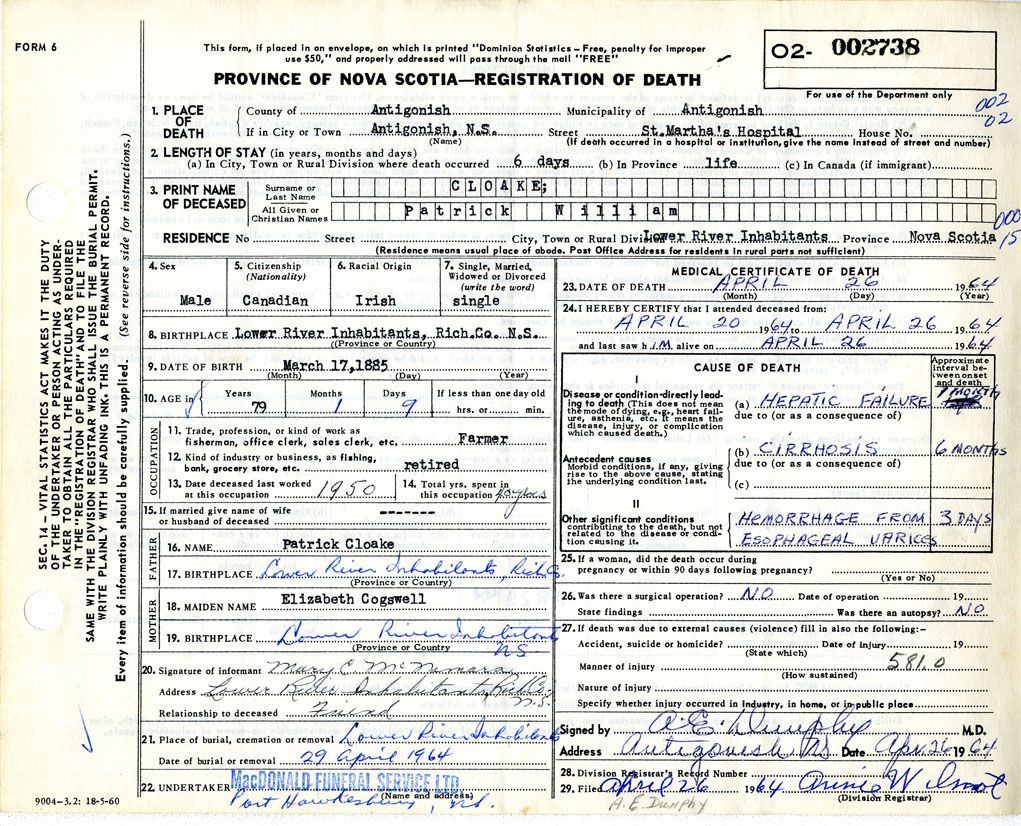 FORM 6
This form, if placed in an envelope, on which is printed "Dominion Statistics – Free, penalty for improper
use $50," and properly addressed will pass through the mail "FREE"
PROVINCE OF NOVA SCOTIA—REGISTRATION OF DEATH
O2- 002738
For use of the Department only
002
02
SEC. 14 – VITAL STATISTICS ACT MAKES IT THE DUTY
OF THE UNDERTAKER OR PERSON ACTING AS UNDER-
TAKER TO OBTAIN ALL THE PARTICULARS REQUIRED
IN THE "REGISTRATION OF DEATH" AND TO FILE THE
SAME WITH THE DIVISION REGISTRAR WHO SHALL ISSUE THE BURIAL PERMIT.
WRITE PLAINLY WITH UNFADING INK. THIS IS A PERMANENT RECORD.
Every item of information should be carefully supplied. (See reverse side for instructions.)
1. PLACE OF DEATH
County of Antigonish Municipality of Antigonish
If in City or Town Antigonish, N.S. Street St.Martha's Hospital House No.
(Name) (If death occurred in a hospital or institution, give the name instead of street and number)
2. LENGTH OF STAY (in years, months and days)
(a) In City, Town or Rural Division where death occurred 6 days (b) In Province life (c) In Canada (if immigrant)
3. PRINT NAME OF DECEASED
Surname or Last Name CLOAKE;
All Given or Christian Names Patrick William
000
15
RESIDENCE No Street City, Town or Rural Division Lower River Inhabitants Province Nova Scotia
(Residence means usual place of abode. Post Office Address for residents in rural parts not sufficient)
4. Sex Male
5. Citizenship (Nationality) Canadian
6. Racial Origin Irish
7. Single, Married, Widowed or Divorced (write the word) single
8. BIRTHPLACE Lower River Inhabitants, Rich.Co. N.S.
(Province or Country)
9. DATE OF BIRTH March 17,1885
(Month) (Day) (Year)
10. AGE in Years 79 Months 1 Days 9 If less than one day old hrs. or min.
OCCUPATION
11. Trade, profession, or kind of work as
fisherman, office clerk, sales clerk, etc. Farmer
12. Kind of industry or business, as fishing,
bank, grocery store, etc. retired
13. Date deceased last worked
at this occupation 1950
14. Total yrs. spent in
this occupation
15. If married give name of wife
or husband of deceased -------
FATHER
16. NAME Patrick Cloake
17. BIRTHPLACE Lower River Inhabitants, Rich Co.
(Province or Country)
MOTHER
18. MAIDEN NAME Elizabeth Cogswell
19. BIRTHPLACE Lower River Inhabitants
(Province or Country) NS
20. Signature of informant Mary E McNamara
Address Lower River Inhabitants, Rich Co. N.S.
Relationship to deceased Friend
21. Place of burial, cremation or removal Lower River Inhabitants
Date of burial or removal 29 April 1964
22. UNDERTAKER MacDONALD FUNERAL SERVICE LTD.
(Name and address)
Port Hawkesbury, N.S.
9004–3.2: 18-5-60
MEDICAL CERTIFICATE OF DEATH
23. DATE OF DEATH APRIL 26 1964
(Month) (Day) (Year)
24. I HEREBY CERTIFY that I attended deceased from:
APRIL 20 1964 to APRIL 26 1964
and last saw h IM alive on APRIL 26 1964
CAUSE OF DEATH
Approximate interval between onset and death
I
Disease or condition directly leading to death (This does not mean the mode of dying, e.g., heart failure, asthenia, etc. It means the disease, injury, or complication which caused death.)
(a) HEPATIC FAILURE 1 MONTH
due to (or as a consequence of)
Antecedent causes
Morbid conditions, if any, giving rise to the above cause, stating the underlying condition last.
(b) CIRRHOSIS 6 MONTHS
due to (or as a consequence of)
(c)
II
Other significant conditions contributing to the death, but not related to the disease or condition causing it.
HEMORRHAGE FROM 3 DAYS
ESOPHAGEAL VARICES
25. If a woman, did the death occur during
pregnancy or within 90 days following pregnancy?
(Yes or No)
26. Was there a surgical operation? NO Date of operation 19
State findings Was there an autopsy? NO
27. If death was due to external causes (violence) fill in also the following:–
Accident, suicide or homicide? Date of injury 19
(State which)
Manner of injury 581.0
(How sustained)
Nature of injury
Specify whether injury occurred in industry, in home, or in public place
Signed by A.E. Dunphy M.D.
Address Antigonish NS Date Apr. 26 1964
28. Division Registrar's Record Number
29. Filed April 26 1964 Annie Wilmot
(Division Registrar)
A.E. DUNPHY